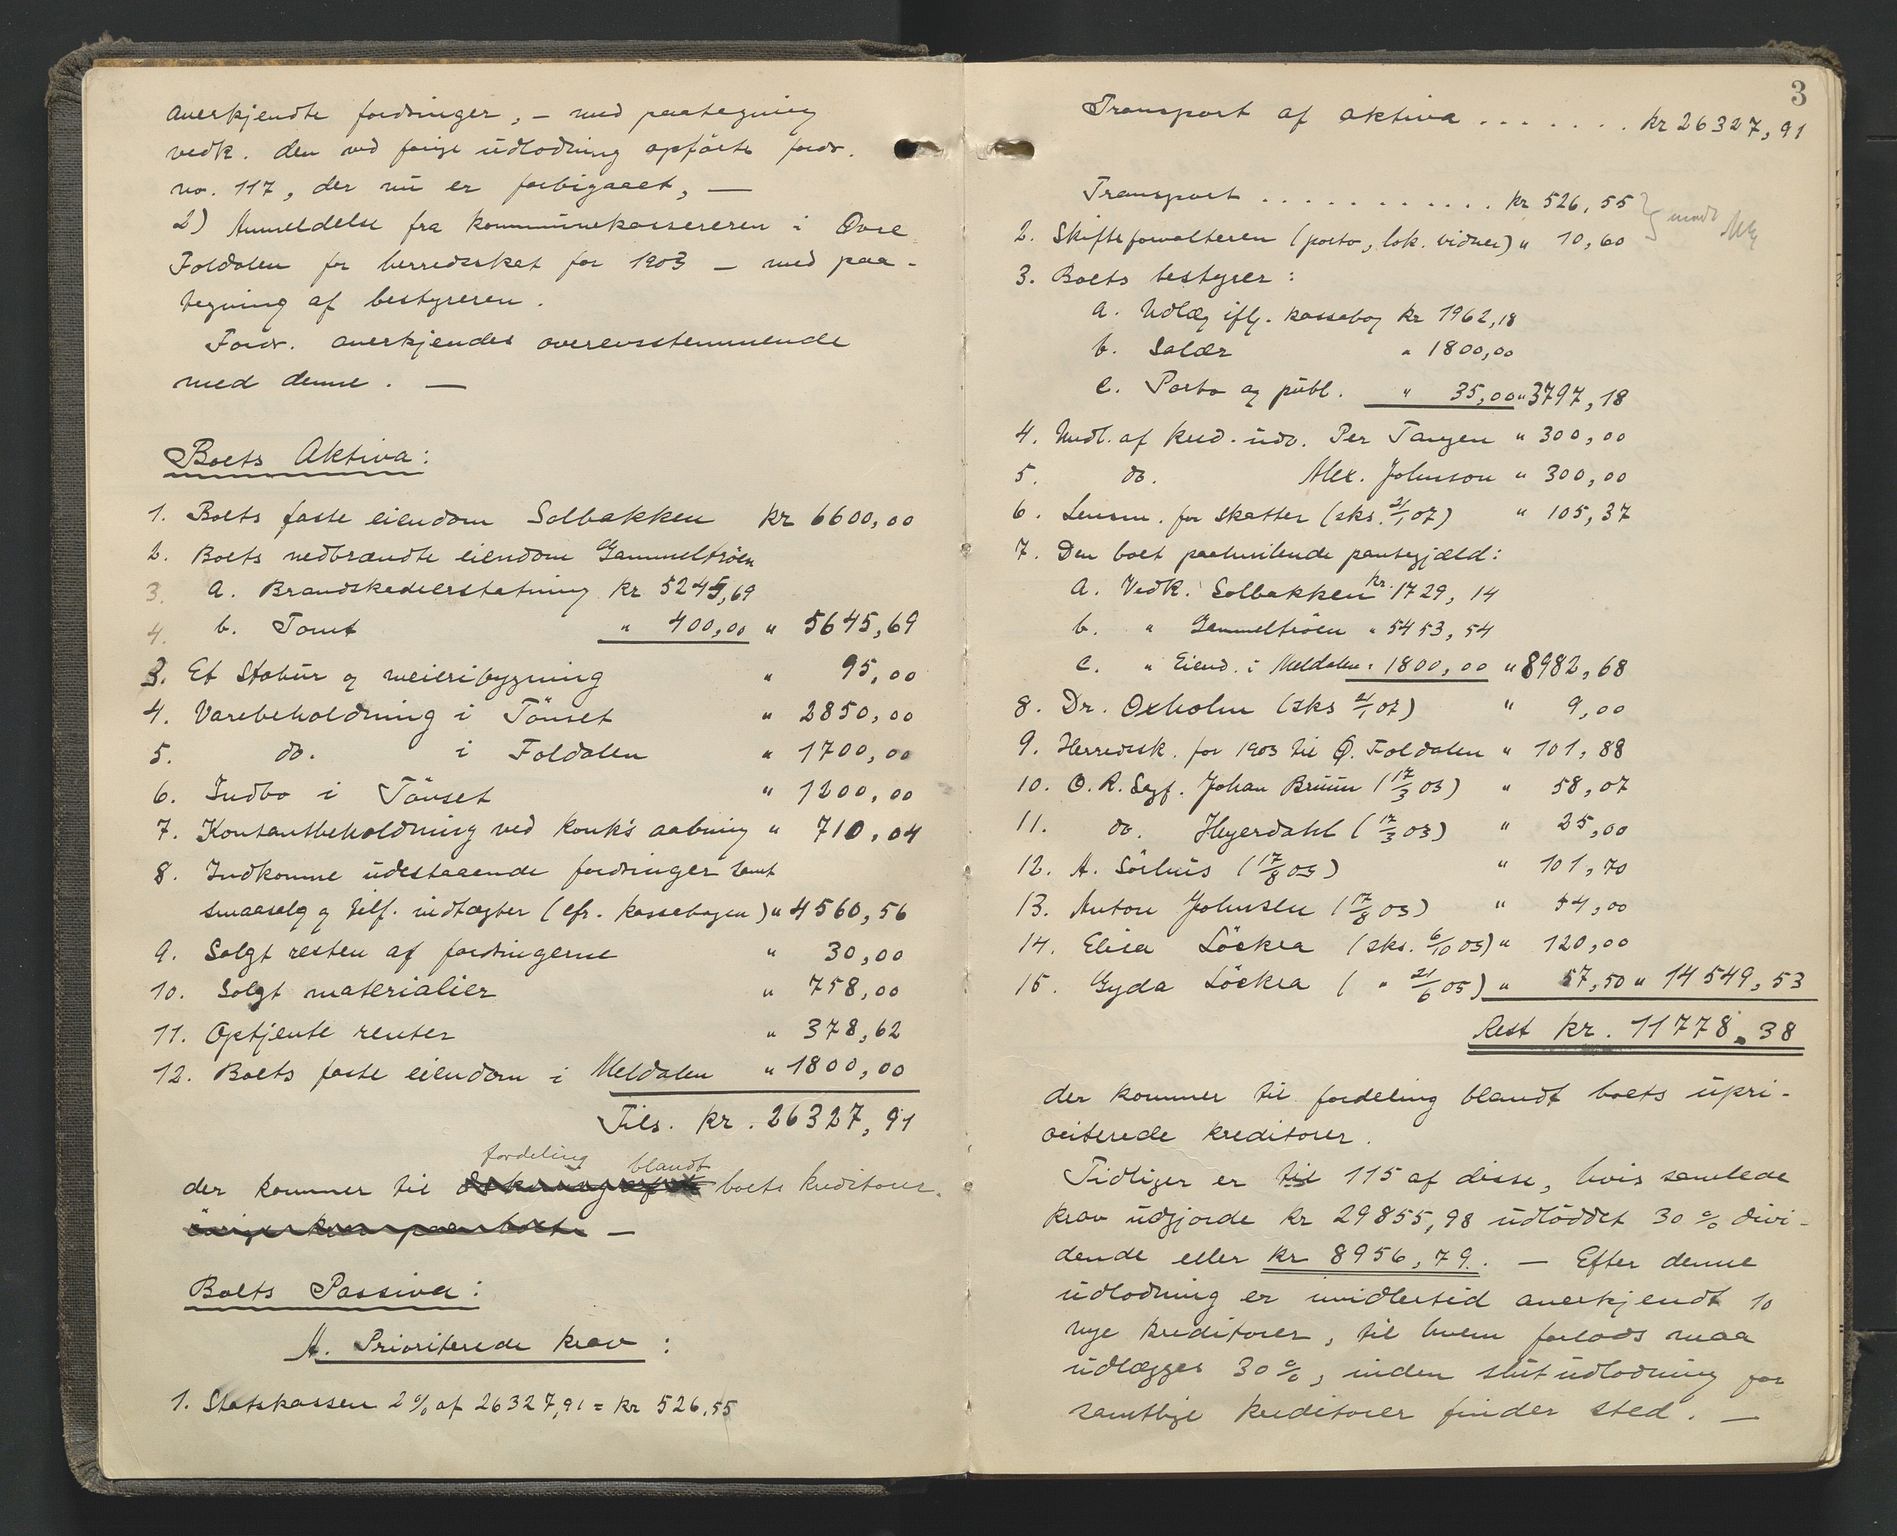 anerkjendte fordringer, – med paategning
vedk. den ved forige udlodning opförte fordr.
no. 117, der nu er forbigaaet, —
2) Anmeldelse fra kommunekassereren i Övre
Foldalen for herredsskat for 1903 – med paa-
tegning af bestyreren.
Fordr. anerkjendes overensstemmende
med denne. —
Boets Aktiva:
1. Boets faste eiendom Solbakken kr 6600,00
2. Boets nedbrændte eiendom Gammeltröen
3. a. Brandskadeerstatning kr 5245,69
4. b. Tomt " 400,00 " 5645,69
3. Et Stabur og meieribygning " 95,00
4. Varebeholdning i Tönset " 2850,00
5. do. i Foldalen " 1700,00
6. Indbo i Tönset " 1200,00
7. Kontantbeholdning ved konk's aabning " 710,04
8. Indkomne udestaaende fordringer samt
smaasalg og tilf. indtægter (cfr. kassebogen) " 4560,56
9. Solgt resten af fordringerne " 30,00
10. Solgt materialier " 758,00
11. Optjente renter " 378,62
12. Boets faste eiendom i Meldalen " 1800,00
Tils. kr. 26327,91
fordeling blandt
der kommer til boets kreditorer.
—
Boets Passiva:
A. Prioriterede krav:
1. Statskassen 2 % af 26327,91 = kr 526,55
3
Transport af aktiva . . . . . . . kr 26327,91
Transport . . . . . . . . . . . . kr 526,55
2. Skifteforvalteren (porto, lok. vidner) " 10,60
3. Boets bestyrer:
a. Udlæg iflg. kassebog kr 1962,18
b. Salær " 1800,00
c. Porto og publ. " 35,00 " 3797,18
4. Medl. af kred. udv. Per Tangen " 300,00
5. do. Alex. Johnson " 300,00
6. Lensm. for skatter (sks. 21/1 07) " 105,37
7. Den boet paahvilende pantegjæld:
a. Vedk. Solbakken kr. 1729,14
b. " Gammeltröen " 5453,54
c. " Eiend. i Meldalen " 1800,00 " 8982,68
8. Dr. Oxholm (sks 21/1 07) " 9,00
9. Herredssk. for 1903 til Ø. Foldalen " 101,88
10. O. R. Sagf. Johan Bruun (17/3 03) " 58,07
11. do. Heyerdahl (17/3 03) " 25,00
12. A. Sörhus (17/8 03) " 101,70
13. Anton Johnsen (17/8 03) " 54,00
14. Elisa Löckra (sks. 6/10 05) " 120,00
15. Gyda Löckra ( " 21/6 05) " 57,50 " 14549,53
Rest kr. 11778,38
der kommer til fordeling blandt boets upri-
oriterede kreditorer.
Tidliger er til 115 af disse, hvis samlede
krav udgjorde kr 29855,98 udloddet 30 % divi-
dende eller kr 8956,79. — Efter denne
udlodning er imidlertid anerkjendt 10
nye kreditorer, til hvem forlods maa
udlægges 30 %, inden slutudlodning for
samtlige kreditorer finder sted. —